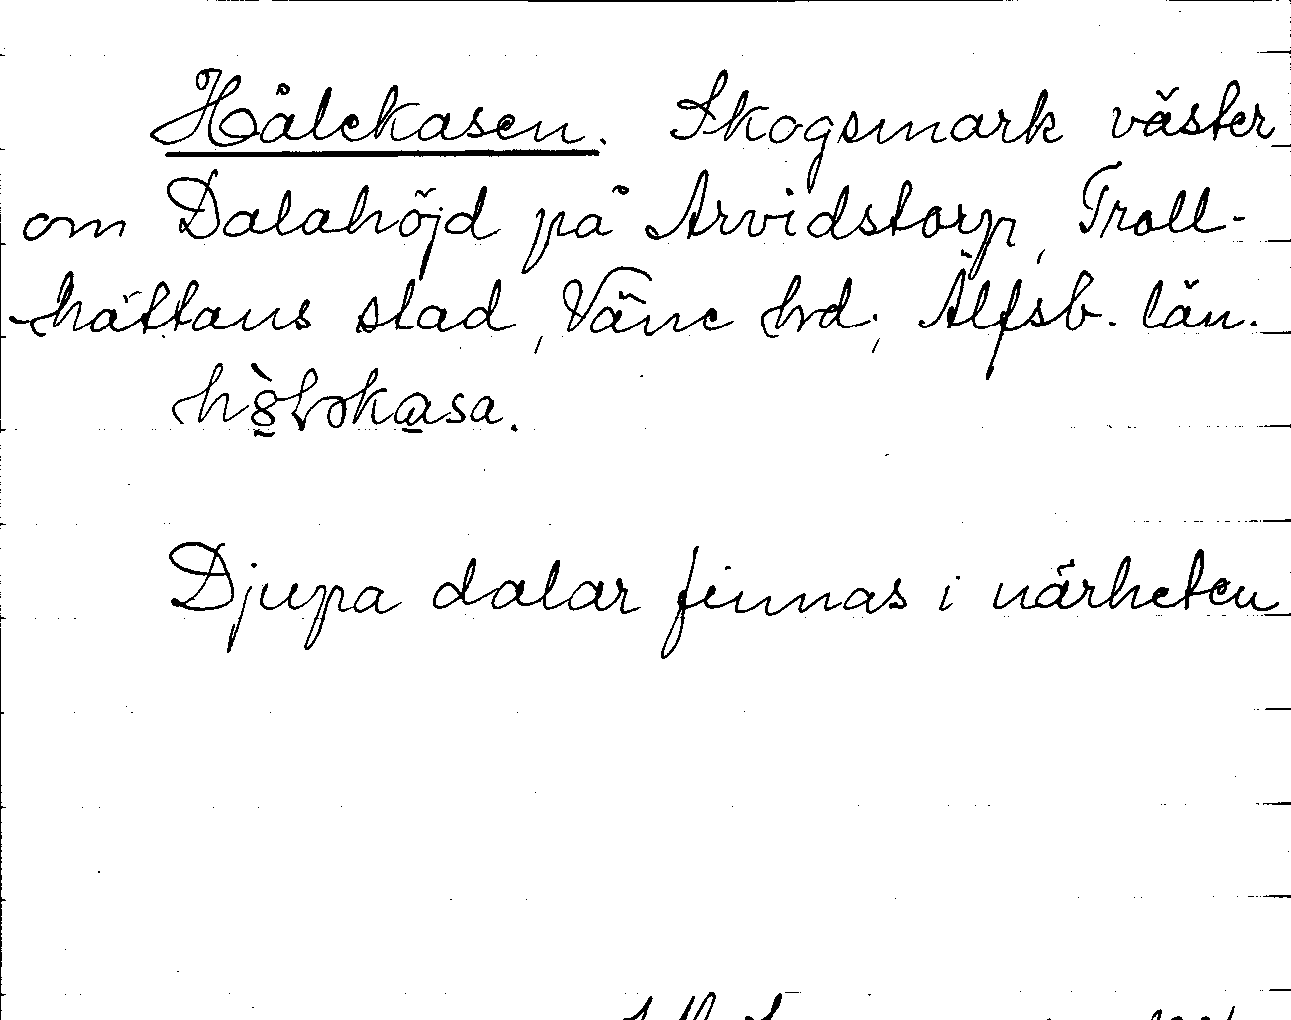 Hålekasen. Skogsmark väster
om Dalahöjd på Arvidstorp, Troll-
hättans stad, Väne hrd, Älfsb. län.
Djupa dalar finnas i närheten